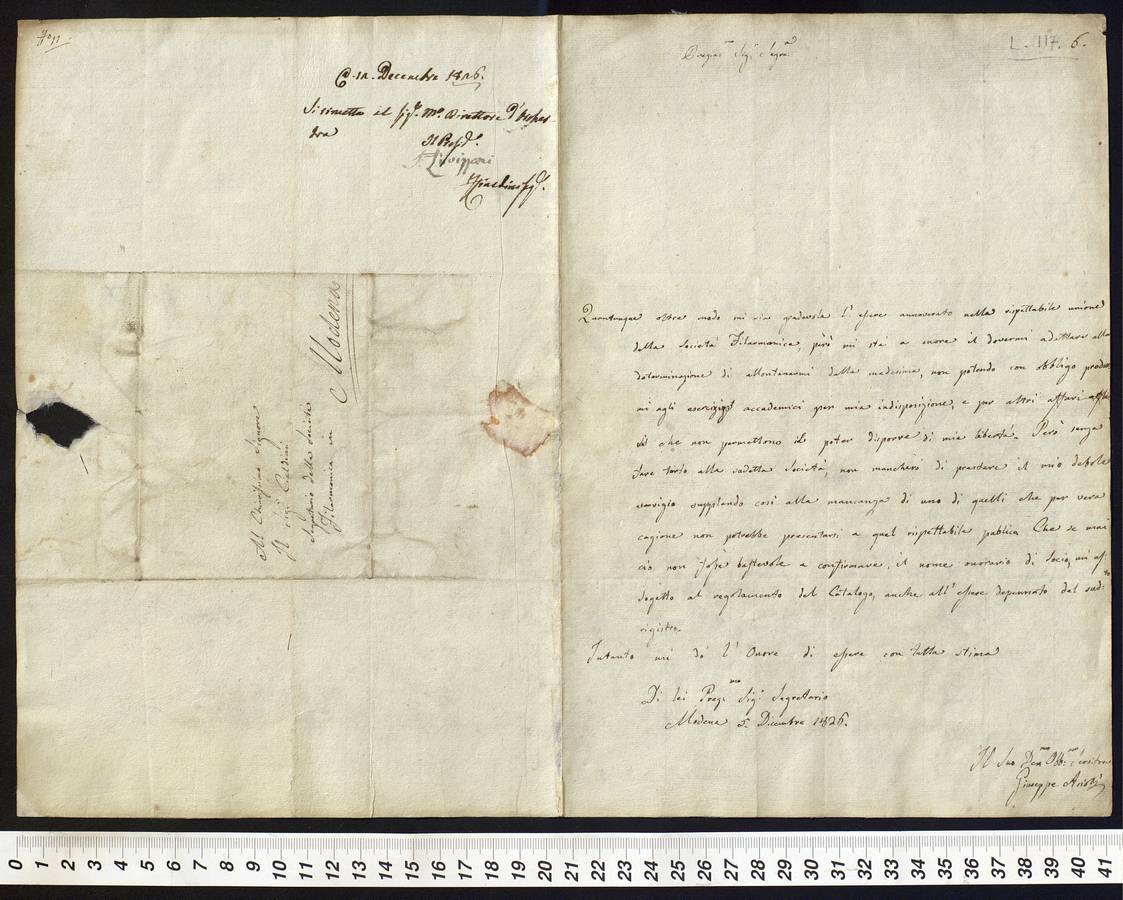 C. 12. Decembre 1826.
Si rimetta al Sig.r M.o Direttore d'Orches
tra
Il Presid.e
Al Chiarissimo Signore
Il Sig.r
Segretario della Società
Filarmonica in
Modena
L. 117. 6.
Pregmo Sigr Segro
Quantunque oltre modo mi sia gradevole l'essere annoverato nella rispettabile unione
della Società Filarmonica, però mi stà a cuore il dovermi adattare alla
determinazione di allontanarmi dalla medesima, non potendo con obbligo
mi agli esercizj accademici per mia indisposizione, e per altri affari
che non permettono il poter disporre di mia libertà. Però senza
fare torto alla sudetta Società, non mancherò di prestare il mio debole
servigio supplendo così alla mancanza di uno di quelli che per vera
cagione non potrebbe presentarsi a quel rispettabile publico. Che se mai
ciò non fosse bastevole a confirmare, il nome onorario di Socio, mi as
sogetto al regolamento del Catalogo, anche all'essere depennato dal sud.to
registro.
Intanto mi dò l'Onore di essere con tutta stima
Di lei Preg.mo Sig.r Segretario
Modena 5. Dicembre 1826.
Il Suo Dev.mo Obb.mo Servitore
Giuseppe